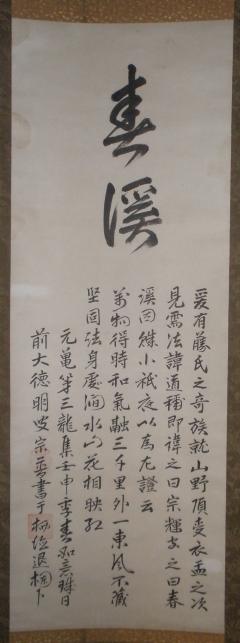 春溪
爰有藤氏之奇族就山野頂受衣盂之次
見需法諱道稱即諱之曰宗輝字之曰春
溪因綴小祇夜以為左證云
萬物得時和氣融三千里外一東風不藏
堅固法身處澗水山花相映紅
元亀第三龍集壬申季春如意珠日
前大德明叟宗普書于
退
下